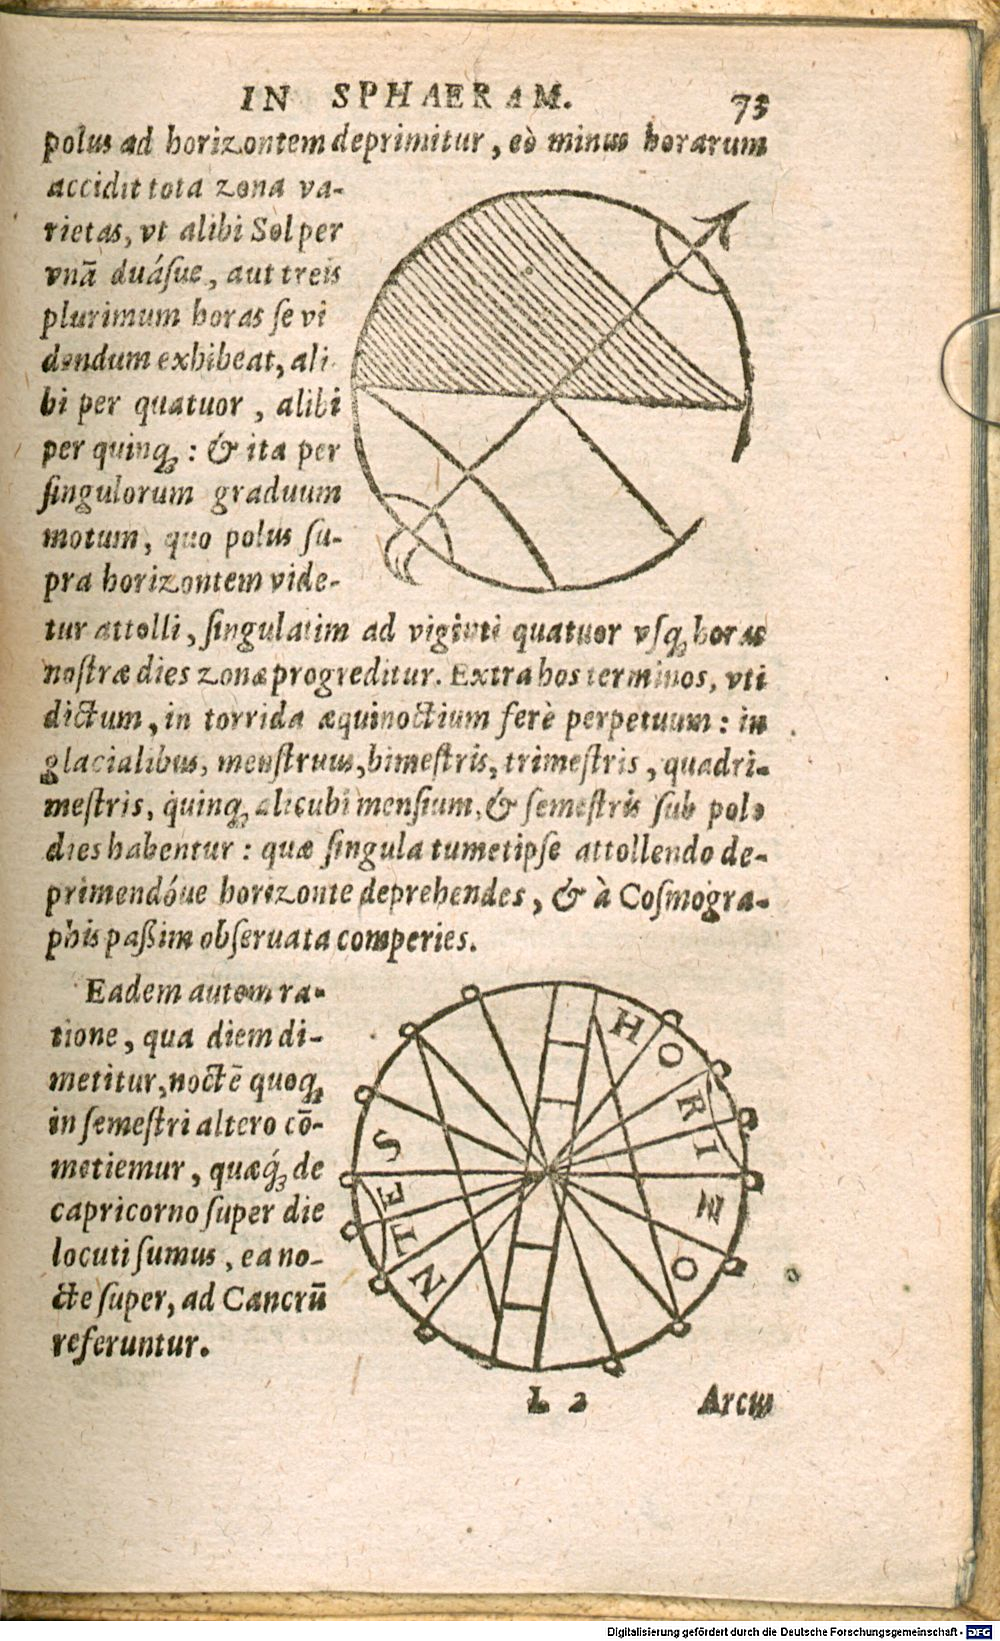 IN SPHAERAM. 73
polus ad horizontem deprimitur, eò minus horarum
accidit tota zona va-
rietas, vt alibi Sol per
vnā duáſue, aut treis
plurimum horas ſe vi
dendum exhibeat, ali
bi per quatuor, alibi
per quinq; : & ita per
ſingulorum graduum
motum, quo polus ſu-
pra horizontem vide-
tur attolli, ſingulatim ad viginti quatuor vſq; horas
noſtræ dies zonæ progreditur. Extra hos terminos, vti
dictum, in torrida æquinoctium ferè perpetuum: in
glacialibus, menſtruus, bimeſtris, trimeſtris, quadri-
meſtris, quinq; alicubi menſium, & ſemeſtris ſub polo
dies habentur: quæ ſingula tumetipſe attollendo de-
primendóue horizonte deprehendes, & à Coſmogra-
phis paßim obſeruata comperies.
Eadem autem ra-
tione, qua diem di-
metitur, noctē quoq;
in ſemeſtri altero cō-
metiemur, quæq́; de
capricorno ſuper die
locuti ſumus, ea no-
cte ſuper, ad Cancrū
referuntur.
HORIZONTES
L 2 Arcus
Digitalisierung gefördert durch die Deutsche Forschungsgemeinschaft - DFG